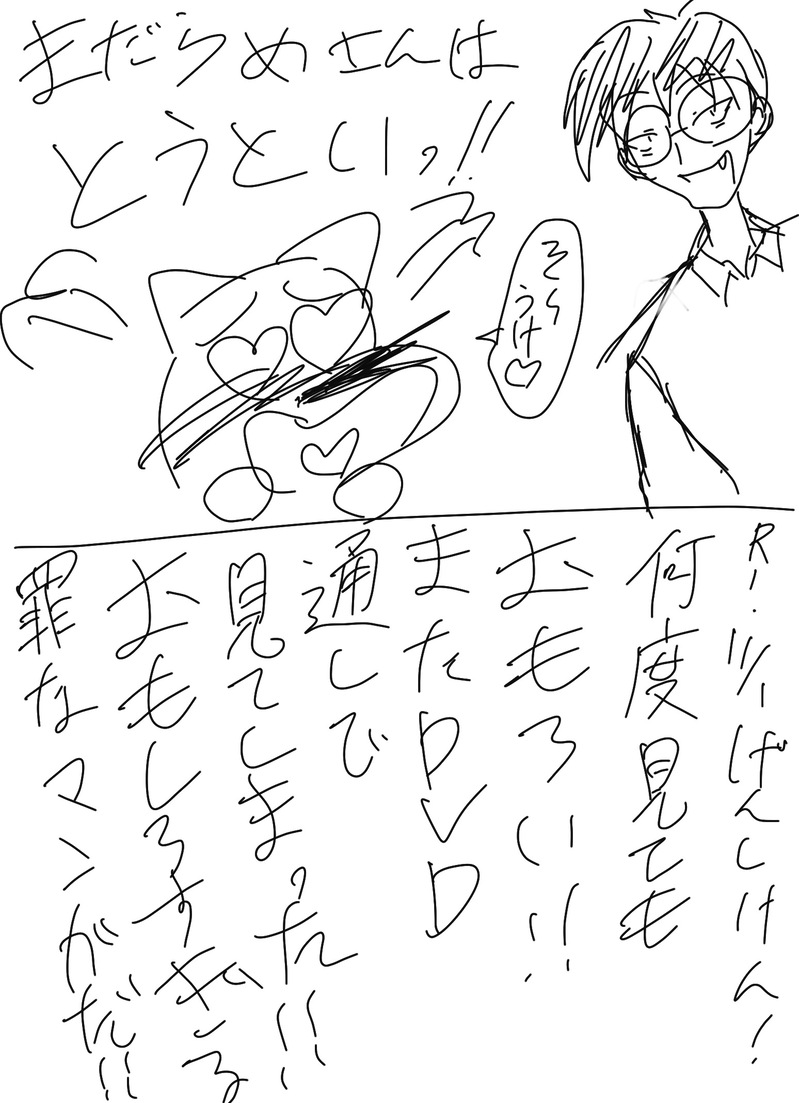 まだらめさんは
とうといっ!!
そく
うけ♡
何度見ても
おもろい!!
またDVD
通しで
見てしまった!!
おもしろすぎる
罪なマンガだ!!
げんしけん!